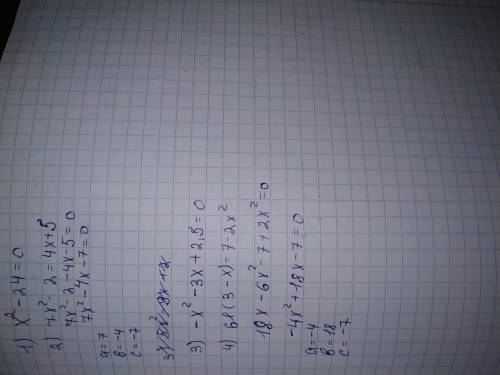 1) x² - 24 = 0
2) 7x² - 2 = 4x + 5
7x² - 2 - 4x - 5 = 0
7x² - 4x - 7 = 0
a = 7
b = -4
c = -7
3) - x² - 3x + 2,5 = 0
4) 6x(3 - x) = 7 - 2x²
18x - 6x² - 7 + 2x² = 0
-4x² + 18x - 7 = 0
a = -4
b = 18
c = -7